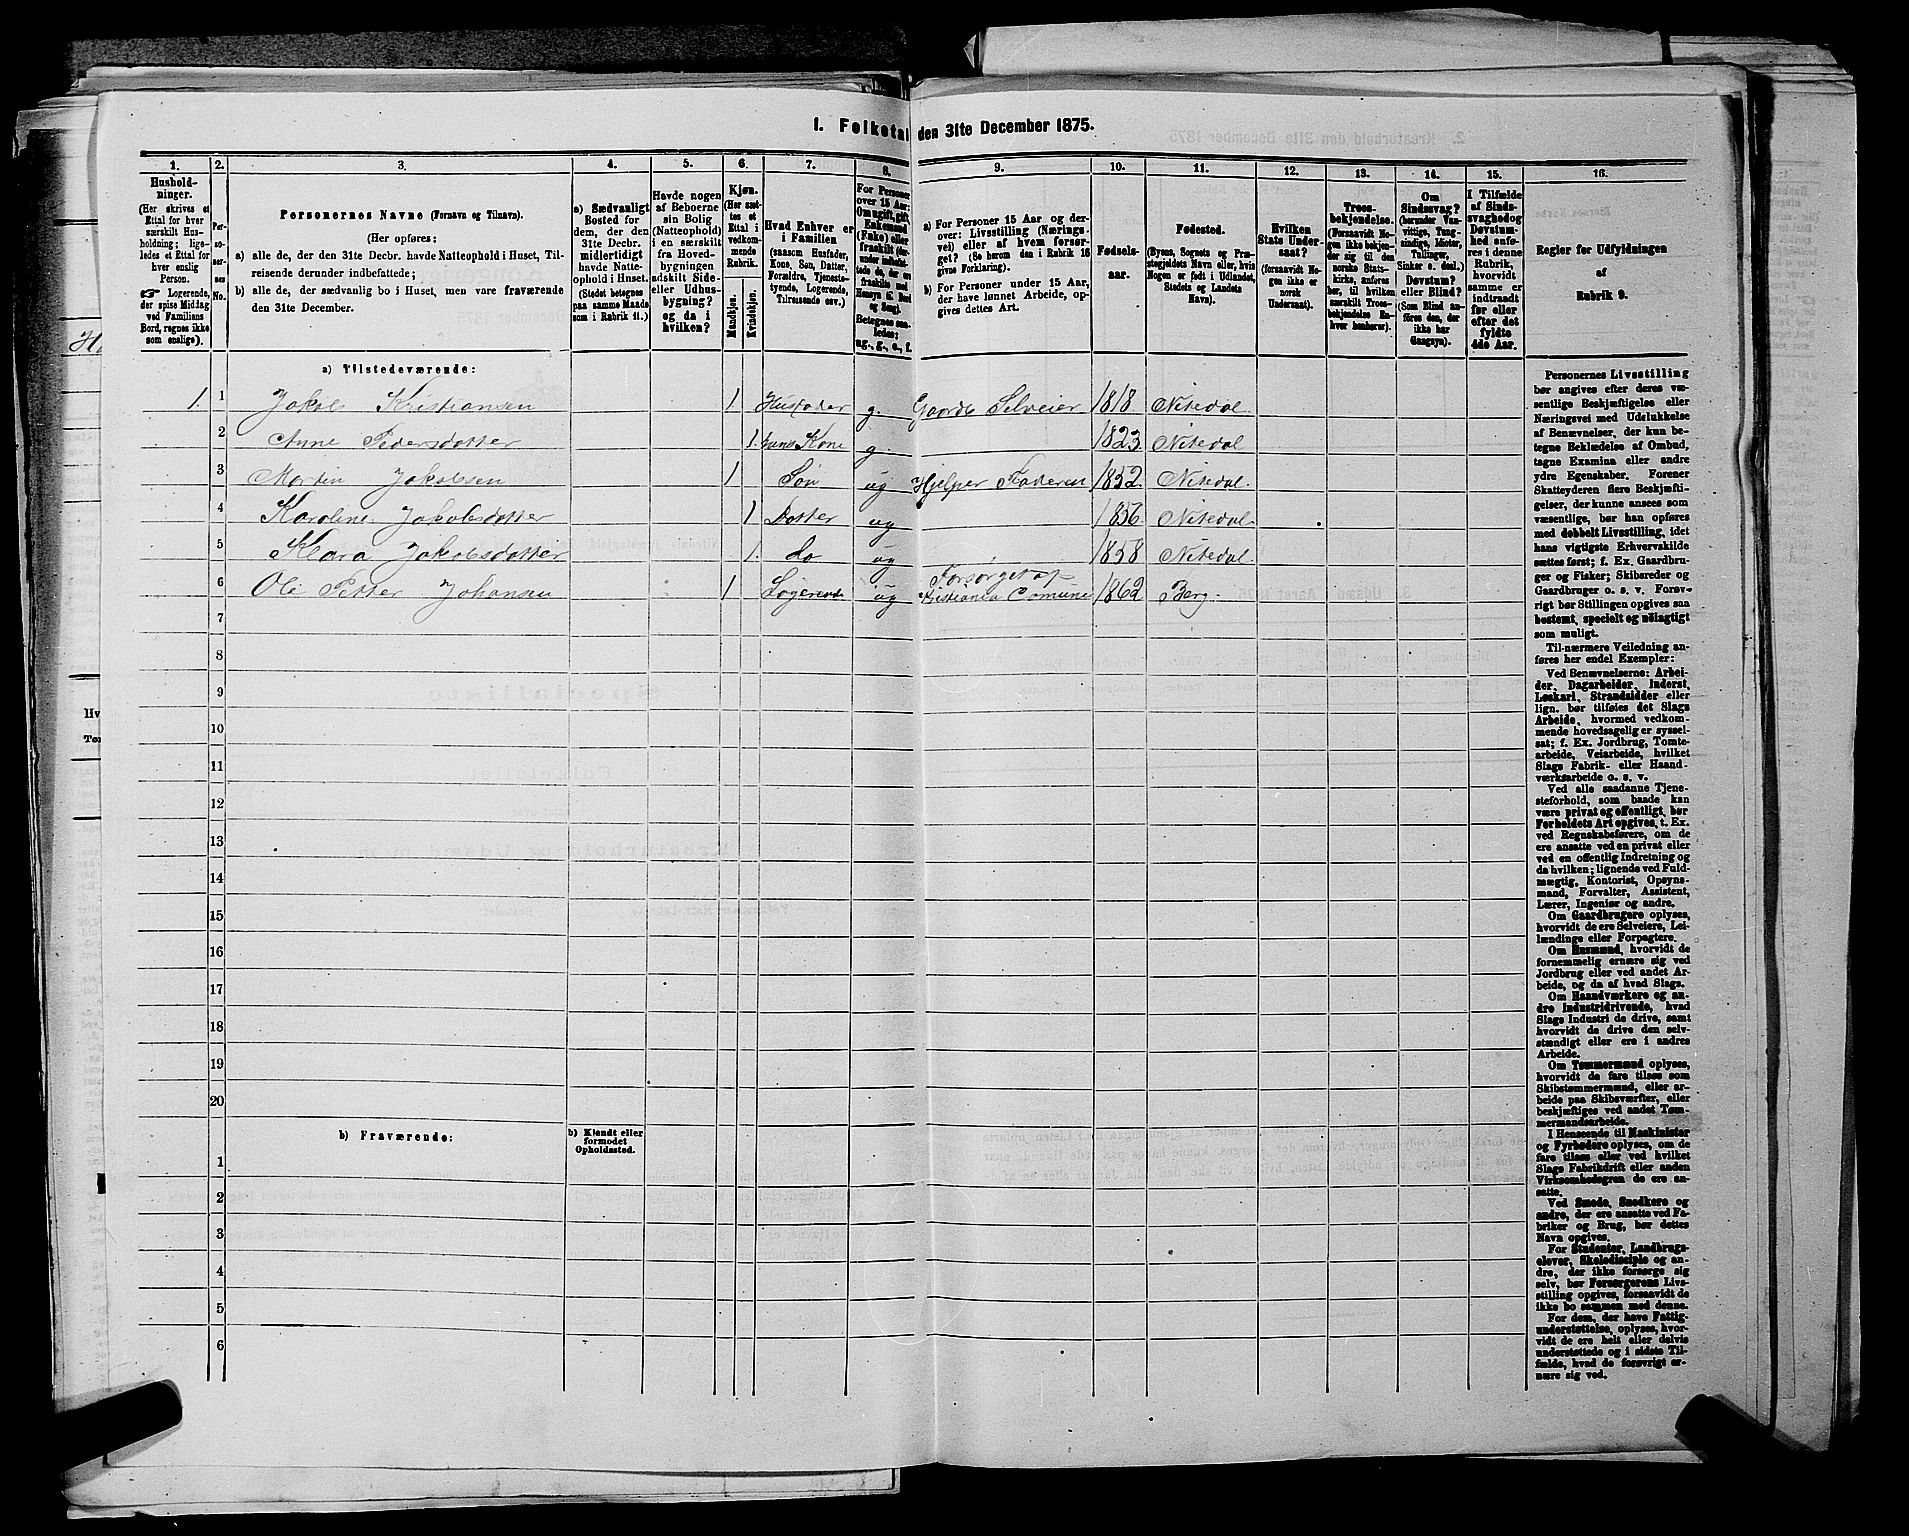 1. Folketal den 31te December 1875.
1. 2. 3. 4. 5. 6. 7. 8. 9. 10. 11. 12. 13. 14. 15. 16.
Hushold-
ninger.
(Her skrives et
Ettal for hver
særskilt Hus-
holdning; lige-
ledes et Ettal
for hver
enslig
Person.
☞ Logerende,
der spise Middag
ved Familiens
Bord, regnes ikke
som enslige).
Per-
so-
ner-
nes
No.
Personernes Navne (Fornavn og Tilnavn).
(Her opføres:
a) alle de, der den 31te Decbr. havde Natteophold i Huset, Til-
reisende derunder indbefattede;
b) alle de, der sædvanlig bo i Huset, men vare fraværende
den 31te December.
a) Sædvanligt
Bosted for
dem, der den
31te Decbr.
midlertidigt
havde Natte-
ophold i Huset.
(Stedet betegnes
paa samme Maade
som i Rubrik 11.)
Havde nogen
af Beboerne
sin Bolig
(Natteophold)
i en særskilt
fra Hoved-
bygningen
adskilt Side-
eller Udhus-
bygning?
og da i
hvilken?
Kjøn.
(Her sæt-
tes et
Ettal i
vedkom-
mende
Rubrik.
Mandkjøn.
Kvindekjøn.
Hvad Enhver er
i Familien
(saasom Husfader,
Kone, Søn, Datter,
Forældre, Tjeneste-
tyende, Logerende,
Tilreisende osv.)
For Personer
over 15 Aar:
Om ugift, gift,
Enkemand
(Enke) eller
fraskilt
Betegnes saa-
ledes:
ug., g., e., f.
a) For Personer 15 Aar og der-
over: Livsstilling (Nærings-
vei) eller af hvem forsør-
get? (Se herom den i Rubrik 16
givne Forklaring).
b) For Personer under 15 Aar,
der have lønnet Arbeide, op-
gives dettes Art.
Fødsels-
aar.
Fødested.
(Byens, Sognets og Præ-
stegjeldets Navn eller, hvis
Nogen er født i Udlandet,
Stedets og Landets
Navn).
Hvilken
Stats Under-
saat?
(forsaavidt No-
gen ikke er
norsk
Undersaat).
Troes-
bekjendelse.
(Forsaavidt No-
gen ikke bekjen-
der sig til den
norske Stats-
kirke, anføres
her, til hvilken
særskilt Troes-
bekjendelse En-
hver henhører).
Om
Sindssvag?
(herunder Van-
vittige, Tung-
sindige, Idioter,
Tullinger,
Sinker o. desl.)
Døvstum?
eller Blind?
(Som Blind an-
føres den, der
ikke har
Gangsyn).
I Tilfælde
af Sinds-
svaghed og
Døvstum-
hed anfø-
res i denne
Rubrik,
hvorvidt
samme er
indtraadt
før eller
efter det
fyldte
4de Aar.
Regler for Udfyldningen
af
Rubrik 9.
a) Tilstedeværende:
1. 1 Jakob Kristiansen 1 Husfader g. Gaardb. Selveier 1818 Nitedal
2 Anne Pedersdatter 1. hans Kone g. 1823 Nitedal
3 Martin Jakobsen 1 Søn ug Hjelper Faderen 1852. Nitedal.
4 Karoline Jakobsdatter 1 Datter ug 1856. Nitedal
5 Klara Jakobsdatter 1. do ug 1858 Nitedal
6 Ole Petter Johansen 1 Logerende ug Forsørget af Kristiania Comune 1862 Berg.
7
8
9
10
11
12
13
14
15
16
17
18
19
20
b) Fraværende:
b) Kjendt eller
formodet
Opholdssted.
1
2
3
4
5
6
Personernes Livsstilling
bør angives efter deres væ-
sentlige Beskjæftigelse eller
Næringsvei med Udelukkelse
af Benævnelser, der kun be-
tegne Beklædelse af Ombud,
tagne Examina eller andre
ydre Egenskaber. Forener
Skatteyderen flere Beskjæfti-
gelser, der kunne ansees som
væsentlige, bør han opføres
med dobbelt Livsstilling, idet
hans vigtigste Erhvervskilde
sættes først; f. Ex. Gaardbru-
ger og Fisker; Skibsreder og
Gaardbruger o. s. v. Forøv-
rigt bør Stillingen opgives saa
bestemt, specielt og nøiagtigt
som muligt.
Til nærmere Veiledning an-
føres her endel Exempler:
Ved Benævnelserne: Arbei-
der, Dagarbeider, Inderst,
Løskarl, Strandsidder eller
lign. bør tilføies det Slags
Arbeide, hvormed vedkom-
mende hovedsagelig er syssel-
sat; f. Ex. Jordbrug, Tomte-
arbeide, Veiarbeide, hvilket
Slags Fabrik- eller Haand-
værksarbeide o. s. v.
Ved alle saadanne Tjene-
steforhold, som baade kan
være privat og offentligt, bør
Forholdets Art opgives, t. Ex.
ved Regnskabsførere, om de
ere ansatte ved en privat eller
ved en offentlig Indretning og
da hvilken; lignende ved Fuld-
mægtig, Kontorist, Opsyns-
mand, Forvalter, Assistent,
Lærer, Ingeniør og andre.
Om Gaardbrugere oplyses,
hvorvidt de ere Selveiere, Lei-
lændinge eller Forpagtere.
Om Husmænd, hvorvidt de
fornemmelig ernære sig ved
Jordbrug eller ved andet Ar-
beide, og da af hvad Slags.
Om Haandværkere og an-
dre Industridrivende, hvad
Slags Industri de drive, samt
hvorvidt de drive den selv-
stændigt eller ere i andres
Arbeide.
Om Tømmermænd oplyses,
hvorvidt de fare tilsøs som
Skibstømmermænd, eller ar-
beide paa Skibsværfter, eller
beskjæftiges ved andet Tøm-
mermandsarbeide.
I Henseende til Maskinister
og Fyrbødere oplyses, om de
fare tilsøs eller ved hvilket
Slags Fabrikdrift eller anden
Virksomhedsgren de ere an-
satte.
Ved Smede, Snedkere og
andre, der ere ansatte ved Fa-
briker og Brug, bør dettes
Navn opgives.
For Studenter, Landbrugs-
elever, Skoledisciple og an-
dre, der ikke forsørge sig
selv, bør Forsørgerens Livs-
stilling opgives, forsaavidt de
ikke bo sammen med denne.
For dem, der have Fattig-
understøttelse, oplyses, hvor-
vidt de ere helt eller delvis
understøttede og i sidste Til-
fælde, hvad de forøvrigt er-
nære sig ved.